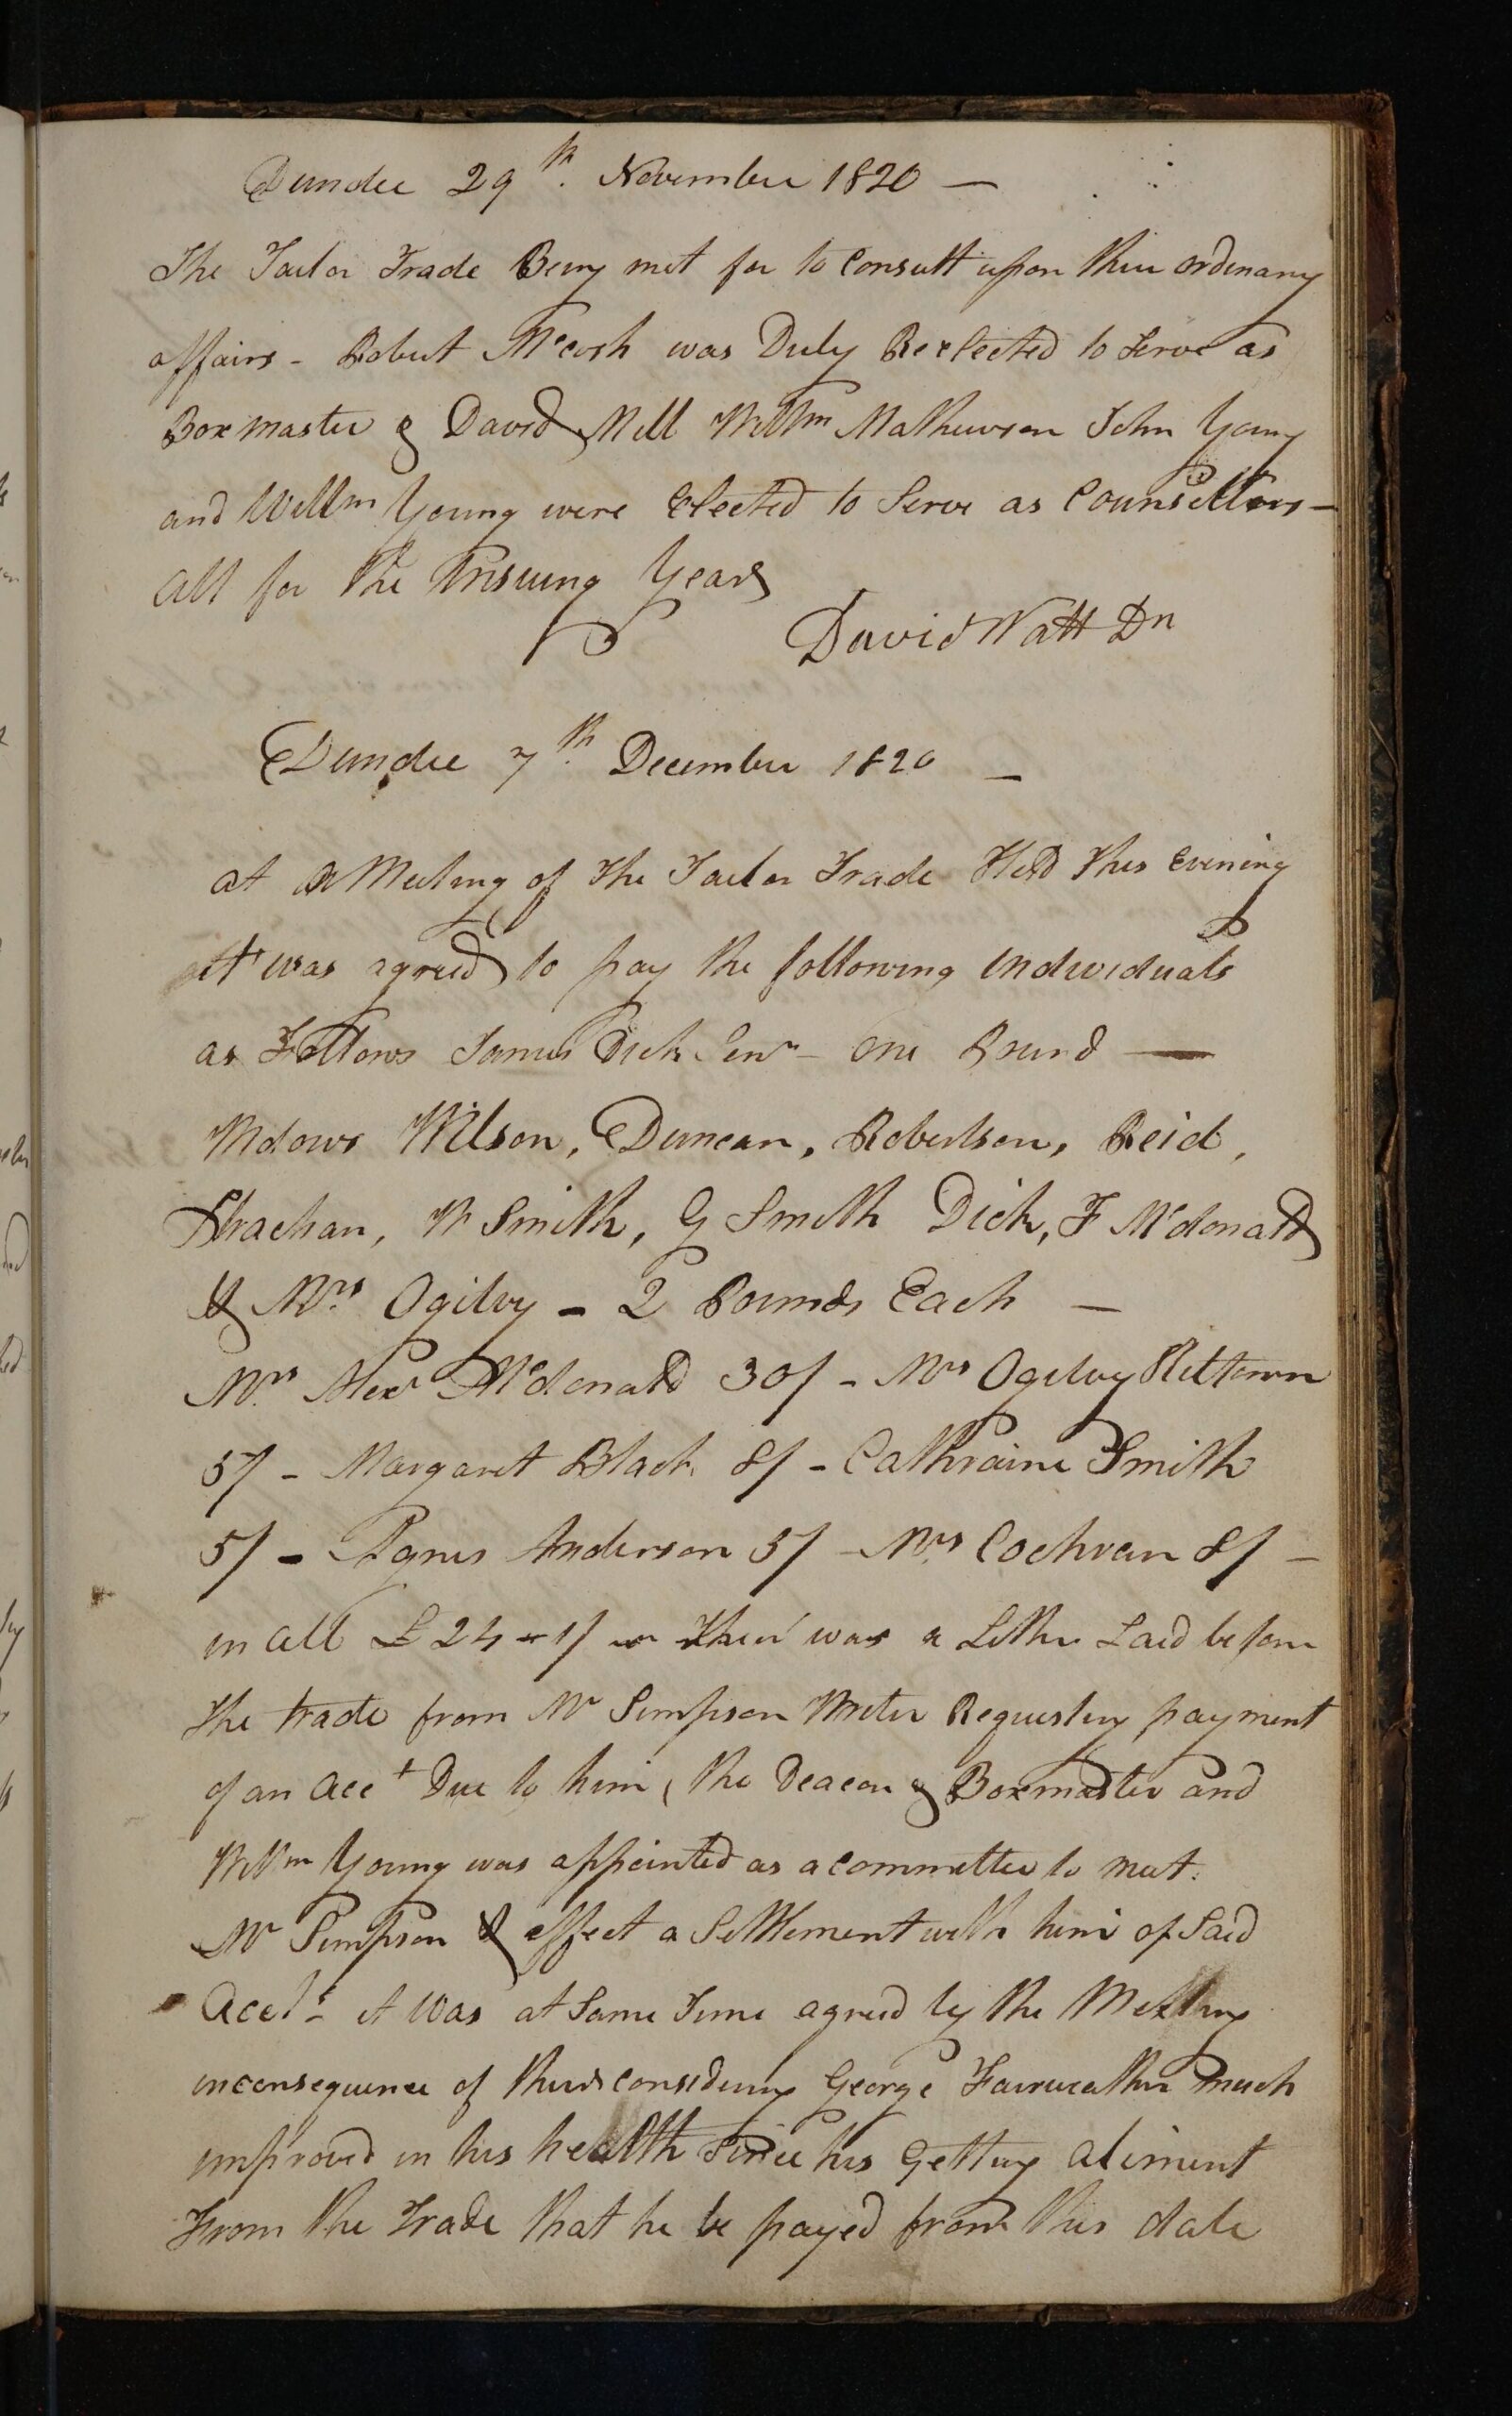 Dundee 29th. November 1820 —
The Tailor Trade Being met for to Consult upon their ordenary
affairs - Robert McCosh was Duly Reelected to Serve as
Boxmaster & David Mill Willm Mathewson John Young
and Willm Young were Elected to Serve as Counsellors -
All for the Ensuing Year
David Watt Dn
Dundee 7th. December 1820 —
at a Meeting of the Tailor Trade Held this Evening
it was agreed to pay the following Individuals
as Follows James Dick Senr - One Pound —
Widows Wilson, Duncan, Robertson, Reid,
Strachan, W Smith, G Smith Dick, F Mcdonald
& Mrs Ogilvy - 2 Pounds Each —
Mrs Alexr Mcdonald 30/ - Mrs Ogilvy Hiltown
5/ - Margaret Black 8/ - Cathraine Smith
5/ - Agnes Anderson 5/ - Mrs Cochran 8/ -
in all £24 - 1/ - There was a Letter Laid before
the trade from Mr Simpson Writer Requesting payment
of an Acct Due to him, the Deacon & Boxmaster and
Willm Young was appointed as a committee to meet
Mr Simpson & effect a Settlement with him of Said
Acct - it Was at Same Time agreed by the Meeting
inconsequence of their considering George Fairweather much
improved in his health Since his Getting aliment
From the Trade that he be payed from this date